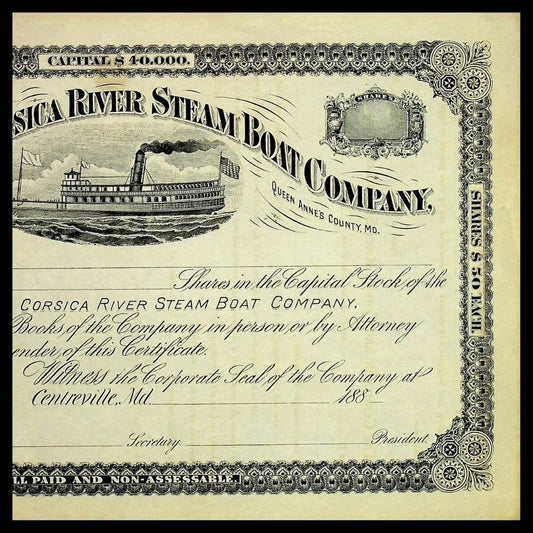 CAPITAL $ 40.000.
SHARES
RSICA RIVER STEAM BOAT COMPANY,
QUEEN ANNE'S COUNTY, MD.
Shares in the Capital Stock of the
CORSICA RIVER STEAM BOAT COMPANY,
Books of the Company in person, or by Attorney
ender of this Certificate.
Witness the Corporate Seal of the Company at
Centreville, Md. 188
Secretary. President.
LL PAID AND NON-ASSESSABLE.
SHARES $ 50 EACH.